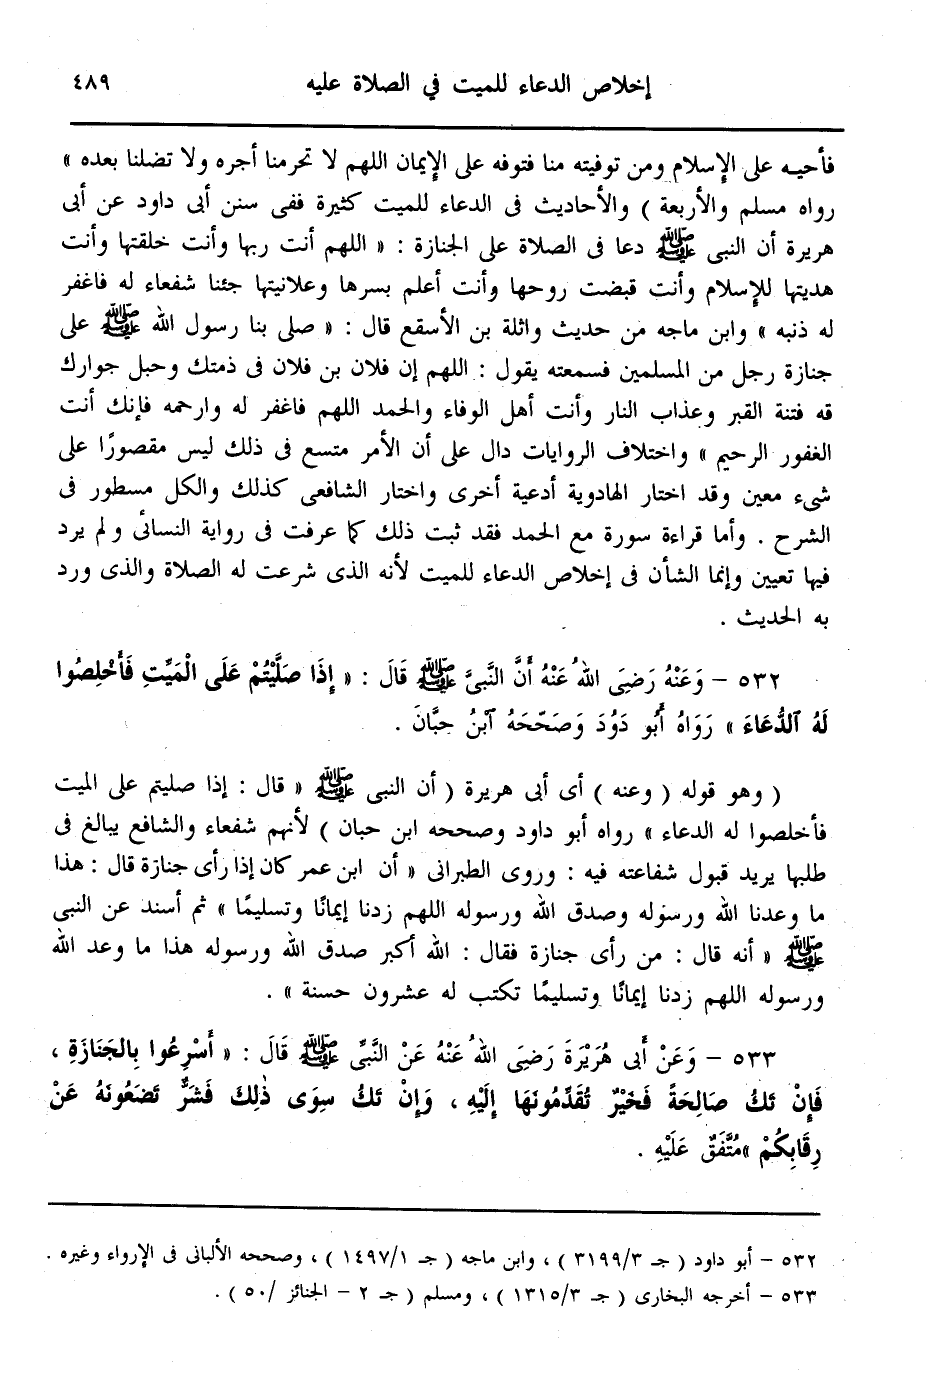 إخلاص الدعاء للميت في الصلاة عليه ٤٨٩
فأحيه على الإسلام ومن توفيته منا فتوفه على الإيمان اللهم لا تحرمنا أجره ولا تضلنا بعده »
رواه مسلم والأربعة ) والأحاديث فى الدعاء للميت كثيرة ففى سنن أبى داود عن أبى
هريرة أن النبى ﷺ دعا فى الصلاة على الجنازة : « اللهم أنت ربها وأنت خلقتها وأنت
هديتها للإسلام وأنت قبضت روحها وأنت أعلم بسرها وعلانيتها جئنا شفعاء له فاغفر
له ذنبه » وابن ماجه من حديث واثلة بن الأسقع قال : « صلى بنا رسول الله ﷺ على
جنازة رجل من المسلمين فسمعته يقول : اللهم إن فلان بن فلان فى ذمتك وحبل جوارك
قه فتنة القبر وعذاب النار وأنت أهل الوفاء والحمد اللهم فاغفر له وارحمه فإنك أنت
الغفور الرحيم » واختلاف الروايات دال على أن الأمر متسع فى ذلك ليس مقصورًا على
شىء معين وقد اختار الهادوية أدعية أخرى واختار الشافعى كذلك والكل مسطور فى
الشرح . وأما قراءة سورة مع الحمد فقد ثبت ذلك كما عرفت فى رواية النسائى ولم يرد
فيها تعيين وإنما الشأن فى إخلاص الدعاء للميت لأنه الذى شرعت له الصلاة والذى ورد
به الحديث .
٥٣٢ – وَعَنْهُ رَضِىَ اللهُ عَنْهُ أَنَّ النَّبِىَّ ﷺ قَالَ : « إِذَا صَلَّيْتُمْ عَلَى الْمَيِّتِ فَأَخْلِصُوا
لَهُ ٱلدُّعَاءَ » رَوَاهُ أَبُو دَوُدَ وَصَحّحَهُ ٱبْنُ حِبَّانَ .
( وهو قوله ( وعنه ) أى أبى هريرة ( أن النبى ﷺ « قال : إذا صليتم على الميت
فأخلصوا له الدعاء » رواه أبو داود وصححه ابن حبان ) لأنهم شفعاء والشافع يبالغ فى
طلبها يريد قبول شفاعته فيه : وروى الطبرانى « أن ابن عمر كان إذا رأى جنازة قال : هذا
ما وعدنا الله ورسوله وصدق الله ورسوله اللهم زدنا إيمانًا وتسليمًا » ثم أسند عن النبى
ﷺ « أنه قال : من رأى جنازة فقال : الله أكبر صدق الله ورسوله هذا ما وعد الله
ورسوله اللهم زدنا إيمانًا وتسليمًا تكتب له عشرون حسنة » .
٥٣٣ – وَعَنْ أَبى هُرَيْرَةَ رَضِىَ اللهُ عَنْهُ عَنْ النَّبىِّ ﷺ قَالَ : « أَسْرِعُوا بِالجَنَازَةِ ،
فَإِنْ تَكُ صَالِحَةً فَخَيْرٌ تُقَدِّمُونَهَا إِلَيْهِ ، وَإِنْ تَكُ سِوَى ذٰلِكَ فَشَرٌّ تَضَعُونَهُ عَنْ
رِقَابِكُمْ » مُتَّفَقٌ عَلَيْهِ .
٥٣٢ – أبو داود ( جـ ٣١٩٩/٣ ) ، وابن ماجه ( جـ ١٤٩٧/١ ) ، وصححه الألبانى فى الإرواء وغيره .
٥٣٣ – أخرجه البخارى ( جـ ١٣١٥/٣ ) ، ومسلم ( جـ ٢ – الجنائز /٥٠ ) .